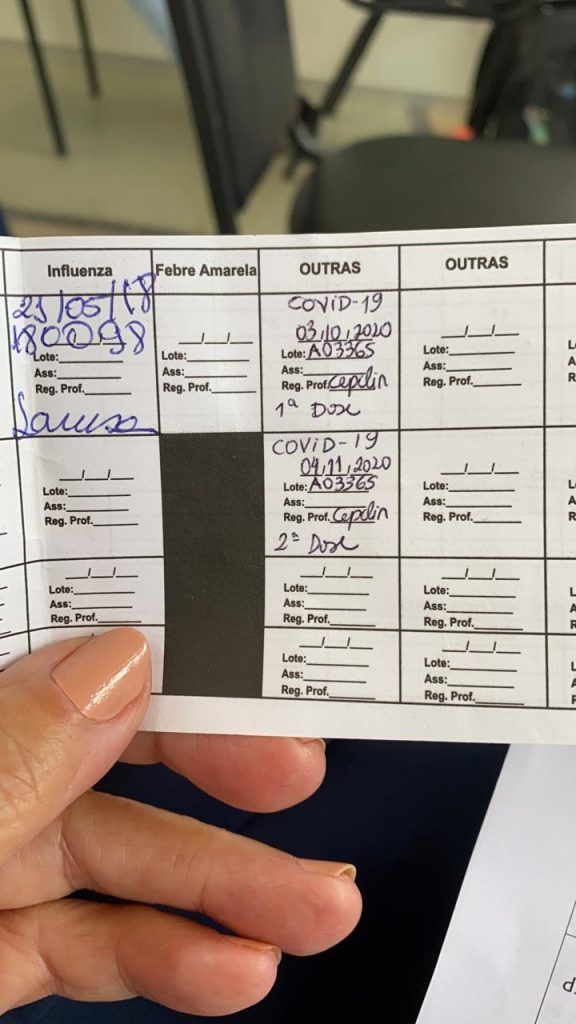 Influenza
23/05/18
180098
Lote:
Ass:
Reg. Prof.
Febre Amarela
__/__/__
Lote:
Ass:
Reg. Prof.
OUTRAS
COViD-19
03,10,2020
Lote: A03365
Ass:
Reg. Prof. Cepclin
1ª Dose
OUTRAS
__/__/__
Lote:
Ass:
Reg. Prof.
__/__/__
Lote:
Ass:
Reg. Prof.
COViD-19
04,11,2020
Lote: A03365
Ass:
Reg. Prof. Cepclin
2ª Dose
__/__/__
Lote:
Ass:
Reg. Prof.
__/__/__
Lote:
Ass:
Reg. Prof.
__/__/__
Lote:
Ass:
Reg. Prof.
__/__/__
Lote:
Ass:
Reg. Prof.
__/__/__
Lote:
Ass:
Reg. Prof.
__/__/__
Lote:
Ass:
Reg. Prof.